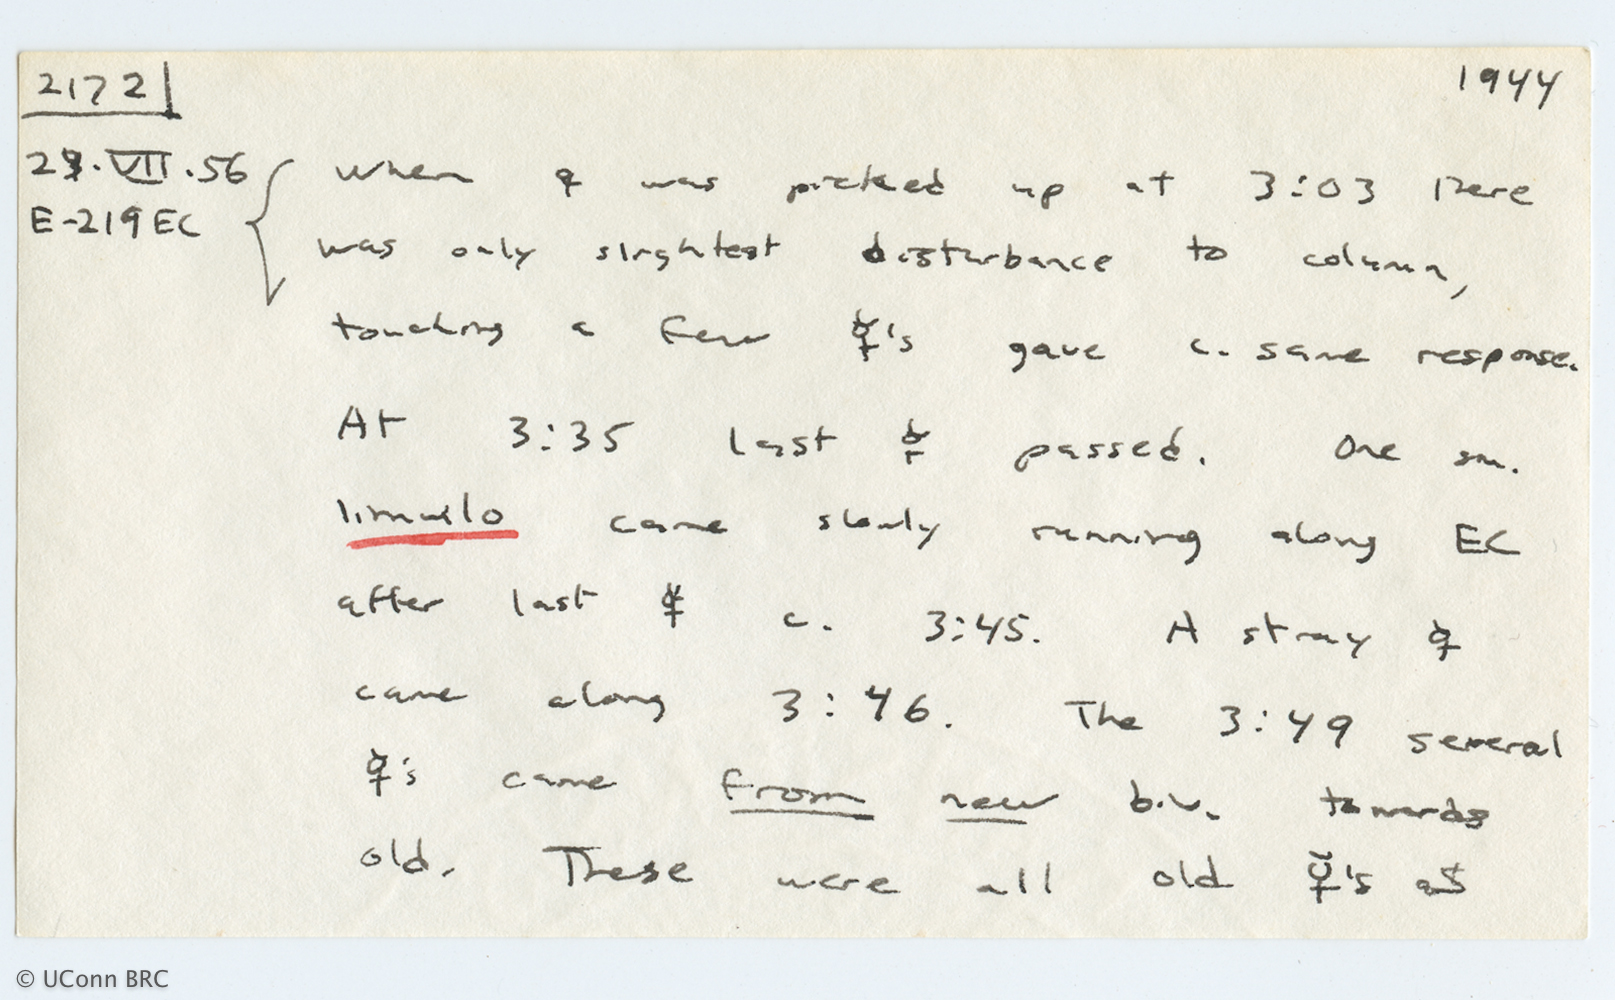 2172
1944
29.VII.56
E-219EC
When ♀ was picked up at 3:03 there
was only slightest disturbance to column,
touching a few ☿'s gave c. same response.
At 3:35 last ☿ passed. One sm.
limulo came slowly running along EC
after last ☿ c. 3:45. A stray ☿
came along 3:46. The 3:49 several
☿'s came from new biv. towards
old. These were all old ☿'s as
© UConn BRC